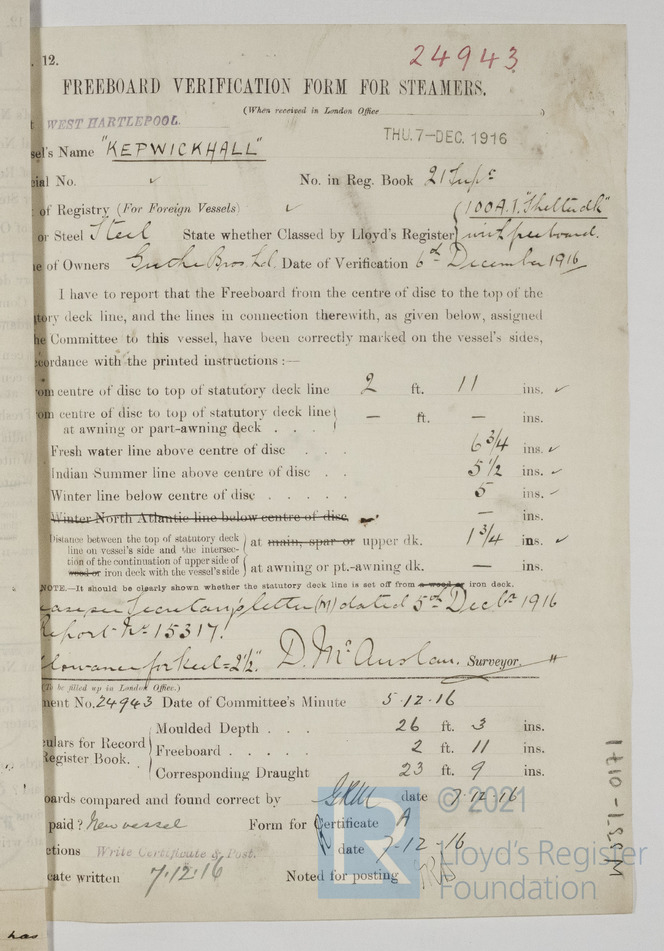 12.
24943
FREEBOARD VERIFICATION FORM FOR STEAMERS.
(When received in London Office )
t WEST HARTLEPOOL.
THU. 7-DEC. 1916
sel's Name "KEPWICKHALL"
cial No. No. in Reg. Book 21 Sup
t of Registry (For Foreign Vessels)
100A.1. "Shelter dk"
or Steel Steel State whether Classed by Lloyd's Register with freeboard.
e of Owners Bros Ld. Date of Verification 6th December 1916
I have to report that the Freeboard from the centre of disc to the top of the
tory deck line, and the lines in connection therewith, as given below, assigned
he Committee to this vessel, have been correctly marked on the vessel's sides,
cordance with the printed instructions :—
om centre of disc to top of statutory deck line 2 ft. 11 ins.
om centre of disc to top of statutory deck line
at awning or part-awning deck . . . — ft. — ins.
Fresh water line above centre of disc . . . 6 3/4 ins.
Indian Summer line above centre of disc . . 5 1/2 ins.
Winter line below centre of disc . . . . . 5 ins.
Winter North Atlantic line below centre of disc — ins.
Distance between the top of statutory deck
line on vessel's side and the intersec-
tion of the continuation of upper side of
wood or iron deck with the vessel's side
at main, spar or upper dk. 1 3/4 ins.
at awning or pt.-awning dk. — ins.
NOTE.—It should be clearly shown whether the statutory deck line is set off from a wood or iron deck.
as per Secretary's letter (M) dated 5th Decbr 1916
Report No 15317.
llowance for keel = 2½". D. McAuslan. Surveyor.
(To be filled up in London Office.)
ment No. 24943 Date of Committee's Minute 5.12.16
Moulded Depth . . . 26 ft. 3 ins.
ulars for Record
Register Book.
Freeboard . . . . . 2 ft. 11 ins.
Corresponding Draught 23 ft. 9 ins.
oards compared and found correct by date 7.12.16
paid? New vessel Form for Certificate A
ctions Write Certificate & Post. date 7-12-16
cate written 7.12.16 Noted for posting
© 2021
LR
Lloyd's Register
Foundation
W531-0171
has